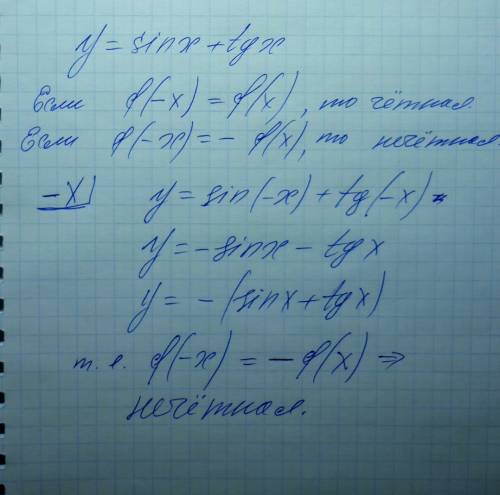 y = sinx + tgx
Если f(-x) = f(x), то чётная.
Если f(-x) = - f(x), то нечётная.
-x) y = sin(-x) + tg(-x) =
y = -sinx - tgx
y = - (sinx + tgx)
т. е. f(-x) = - f(x) ⇒
нечётная.